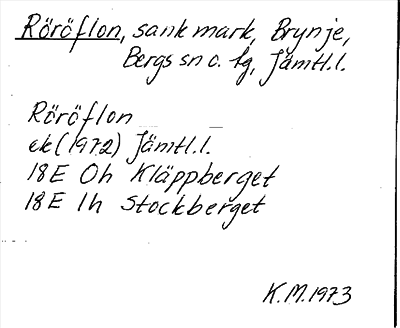 Röröflon, sank mark, Brynje,
Bergs sn o. tg, Jämtl.l.
Röröflon
ek (1972) Jämtl.l.
18E 0h Kläppberget
18E 1h Stockberget
K.M. 1973